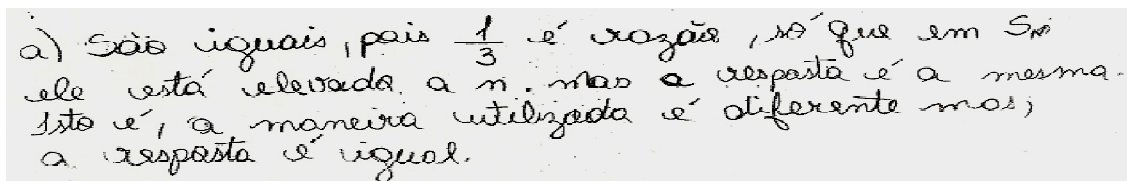 a) São iguais, pois 1/3 é razão, só que em Sn
ele está elevada a n. mas a resposta é a mesma.
Isto é, a maneira utilizada é diferente mas;
a resposta é igual.